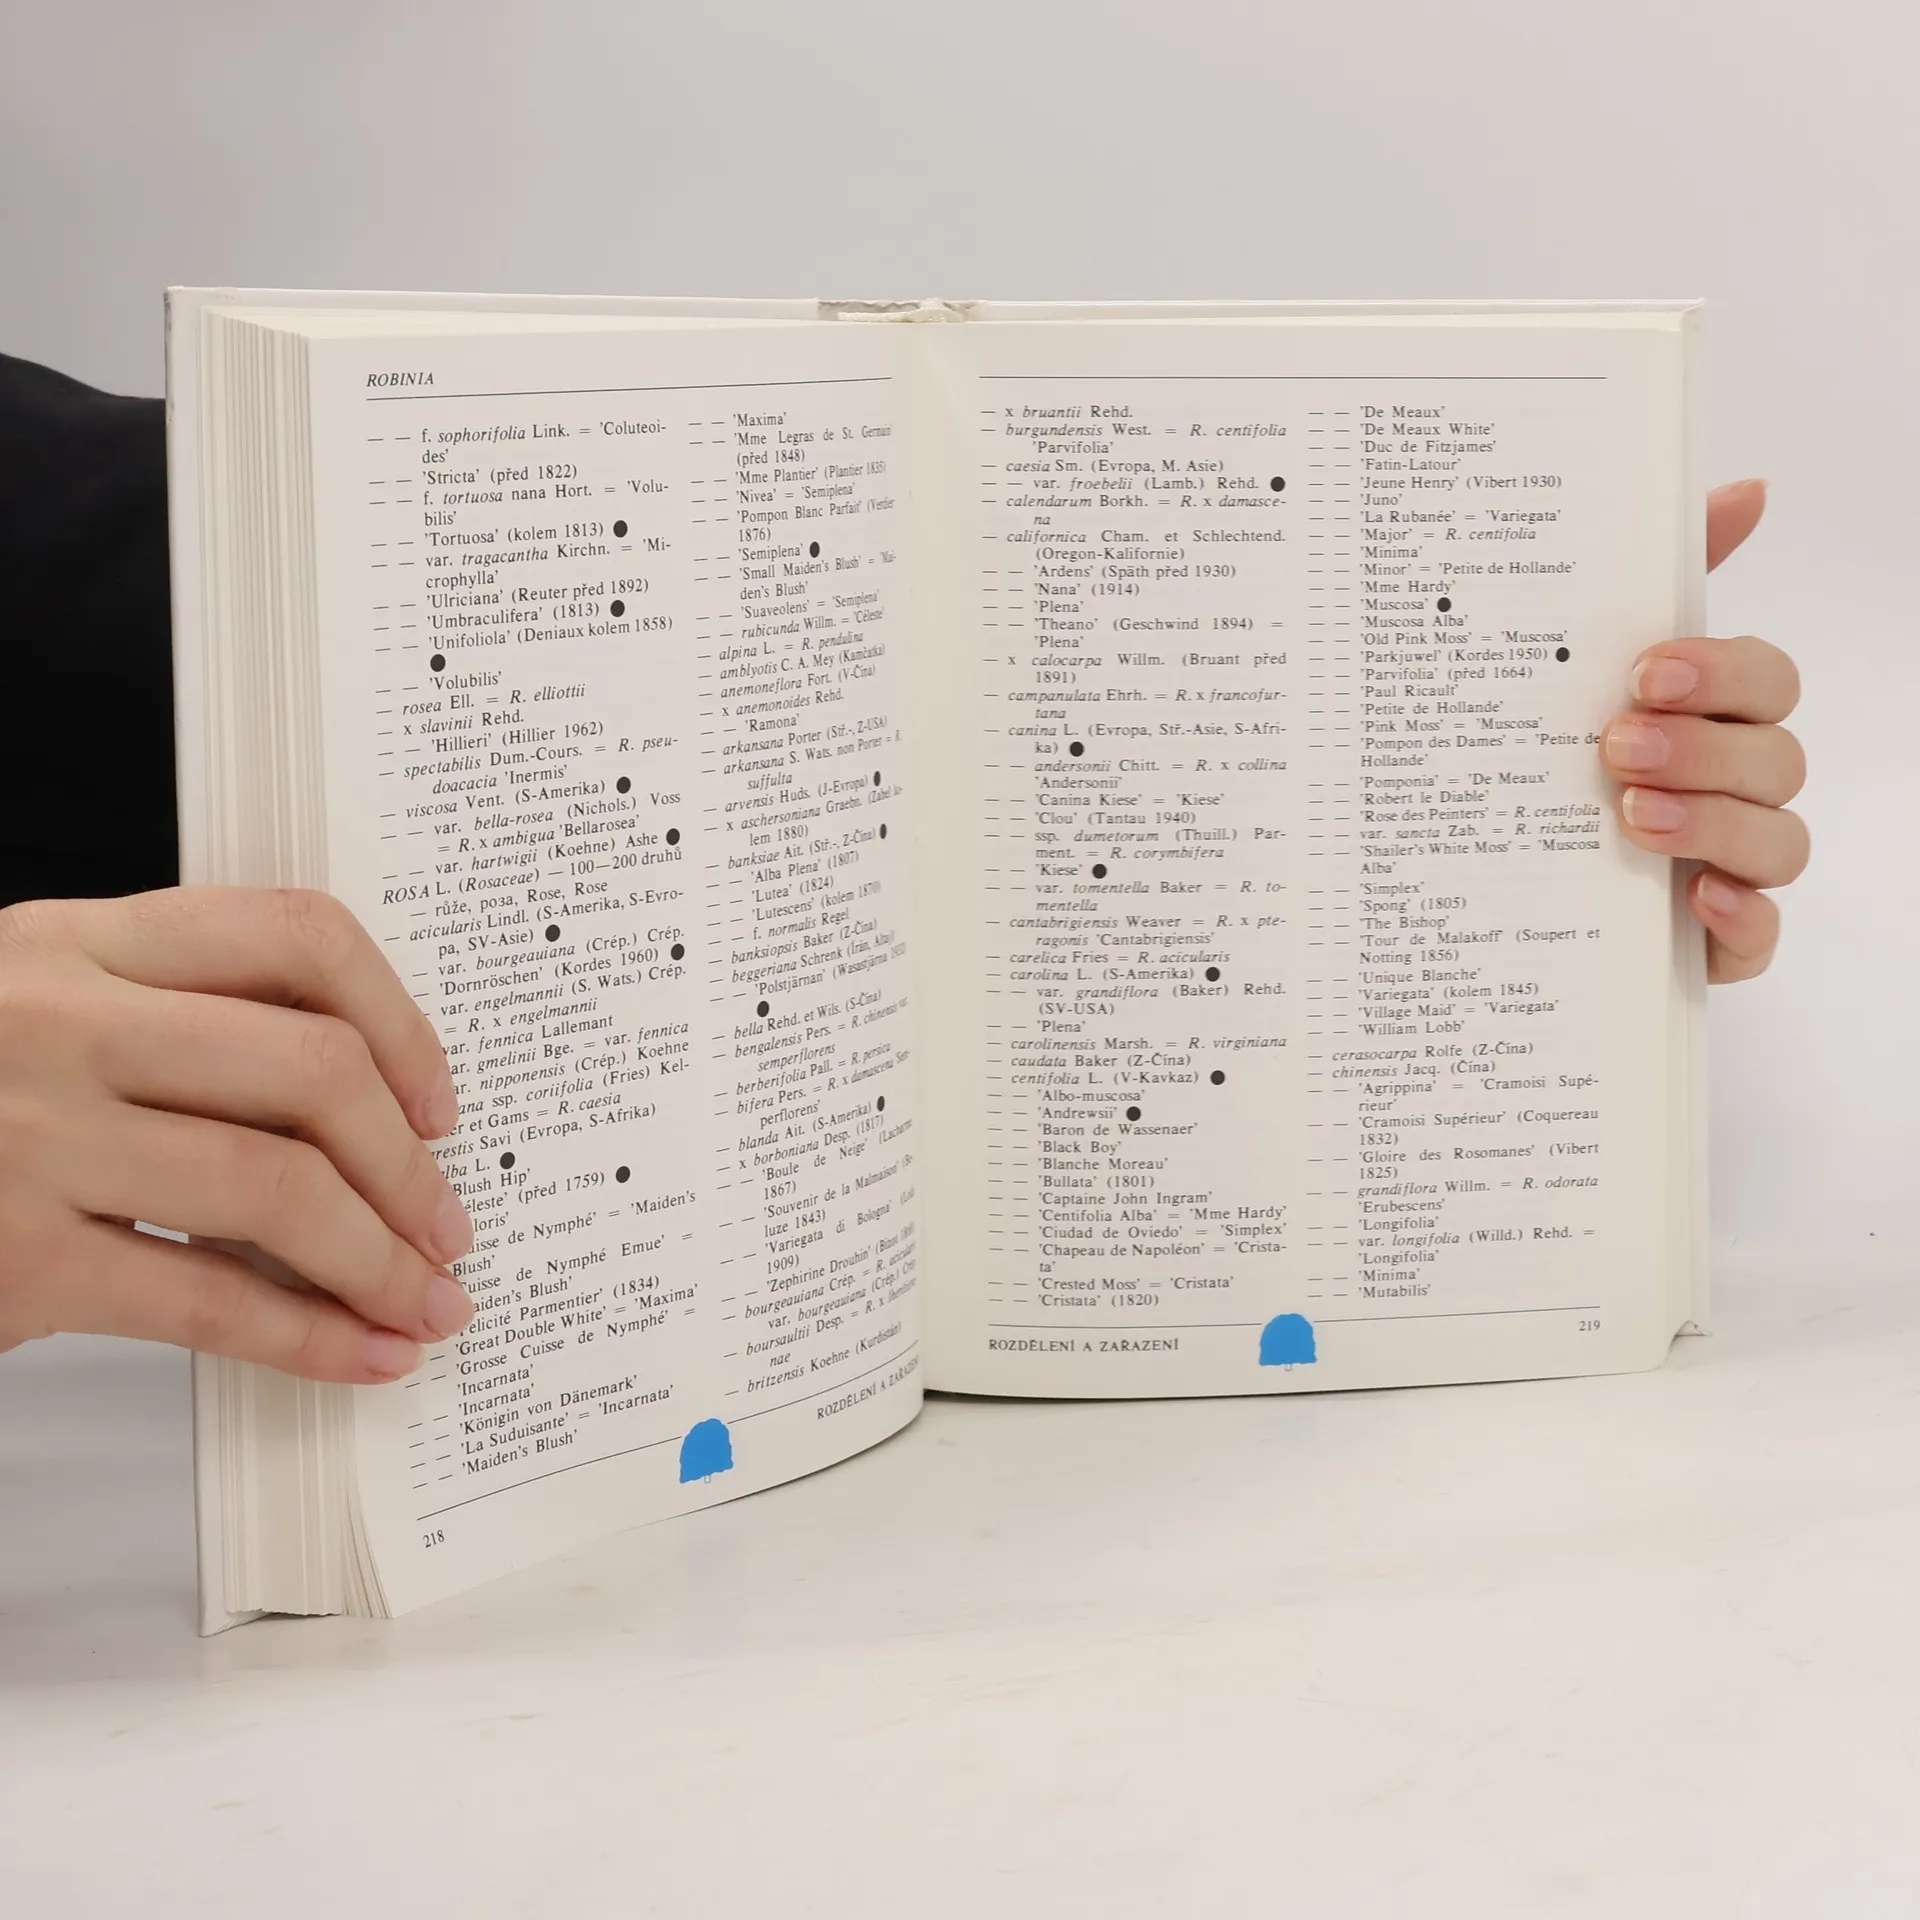 ROBINIA
— — f. sophorifolia Link. = 'Coluteoi-
des'
— — 'Stricta' (před 1822)
— — f. tortuosa nana Hort. = 'Volu-
bilis'
— — 'Tortuosa' (kolem 1813) ●
— — var. tragacantha Kirchn. = 'Mi-
crophylla'
— — 'Ulriciana' (Reuter před 1892)
— — 'Umbraculifera' (1813) ●
— — 'Unifoliola' (Deniaux kolem 1858)
●
— — 'Volubilis'
— rosea Ell. = R. elliottii
— x slavinii Rehd.
— — 'Hillieri' (Hillier 1962)
— spectabilis Dum.-Cours. = R. pseu-
doacacia 'Inermis'
— viscosa Vent. (S-Amerika) ●
— — var. bella-rosea (Nichols.) Voss
= R. x ambigua 'Bellarosea'
— — var. hartwigii (Koehne) Ashe ●
ROSA L. (Rosaceae) — 100—200 druhů
— růže, роза, Rose, Rose
— acicularis Lindl. (S-Amerika, S-Evro-
pa, SV-Asie) ●
— var. bourgeauiana (Crép.) Crép.
— 'Dornröschen' (Kordes 1960) ●
var. engelmannii (S. Wats.) Crép.
= R. x engelmannii
var. fennica Lallemant
gmelinii Bge. = var. fennica
nipponensis (Crép.) Koehne
ssp. coriifolia (Fries) Kel-
et Gams = R. caesia
Savi (Evropa, S-Afrika)
L. ●
Blush Hip'
(před 1759) ●
de Nymphé' = 'Maiden's
Blush'
de Nymphé Emue' =
Blush'
Parmentier' (1834)
'Great Double White' = 'Maxima'
— 'Grosse Cuisse de Nymphé' =
— — 'Incarnata'
'Incarnata'
— — 'Königin von Dänemark'
— — 'La Suduisante' = 'Incarnata'
— — 'Maiden's Blush'
— — 'Maxima'
— — 'Mme Legras de St. Germain'
(před 1848)
— — 'Mme Plantier' (Plantier 1835)
— — 'Nivea' = 'Semiplena'
— — 'Pompon Blanc Parfait' (Verdier
1876)
— — 'Semiplena' ●
— — 'Small Maiden's Blush' = 'Mai-
den's Blush'
— — 'Suaveolens' = 'Semiplena'
— — rubicunda Willm. = 'Céleste'
— alpina L. = R. pendulina
— amblyotis C. A. Mey (Kamčatka)
— anemoneflora Fort. (V-Čína)
— x anemonoides Rehd.
— — 'Ramona'
— arkansana Porter (Stř.-, Z-USA)
— arkansana S. Wats. non Porter = R.
suffulta
— arvensis Huds. (J-Evropa) ●
— x aschersoniana Graebn. (Zabel ko-
lem 1880)
— banksiae Ait. (Stř.-, Z-Čína) ●
— — 'Alba Plena' (1807)
— — 'Lutea' (1824)
— — 'Lutescens' (kolem 1870)
— — f. normalis Regel
— banksiopsis Baker (Z-Čína)
— beggeriana Schrenk (Írán, Altaj)
— — 'Polstjärnan' (Wasastjärna
●
— bella Rehd. et Wils. (S-Čína)
— bengalensis Pers. = R. chinensis var.
semperflorens
— berberifolia Pall. = R. persica
— bifera Pers. = R. x damascena
perflorens'
— blanda Ait. (S-Amerika) ●
— x borboniana Desp. (1817)
— — 'Boule de Neige'
1867)
— — 'Souvenir de la Malmaison' (Be-
luze 1843)
— — 'Variegata di Bologna'
1909)
— — 'Zephirine Drouhin' (Bizot
— bourgeauiana Crép. = R. acicularis
var. bourgeauiana (Crép.)
— boursaultii Desp. = R. x
nae
— britzensis Koehne (Kurdistán)
ROZDĚLENÍ A ZAŘAZENÍ
218
— x bruantii Rehd.
— burgundensis West. = R. centifolia
'Parvifolia'
— caesia Sm. (Evropa, M. Asie)
— — var. froebelii (Lamb.) Rehd. ●
— calendarum Borkh. = R. x damasce-
na
— californica Cham. et Schlechtend.
(Oregon-Kalifornie)
— — 'Ardens' (Späth před 1930)
— — 'Nana' (1914)
— — 'Plena'
— — 'Theano' (Geschwind 1894) =
'Plena'
— x calocarpa Willm. (Bruant před
1891)
— campanulata Ehrh. = R. x francofur-
tana
— canina L. (Evropa, Stř.-Asie, S-Afri-
ka) ●
— — andersonii Chitt. = R. x collina
'Andersonii'
— — 'Canina Kiese' = 'Kiese'
— — 'Clou' (Tantau 1940)
— — ssp. dumetorum (Thuill.) Par-
ment. = R. corymbifera
— — 'Kiese' ●
— — var. tomentella Baker = R. to-
mentella
— cantabrigiensis Weaver = R. x pte-
ragonis 'Cantabrigiensis'
— carelica Fries = R. acicularis
— carolina L. (S-Amerika) ●
— — var. grandiflora (Baker) Rehd.
(SV-USA)
— — 'Plena'
— carolinensis Marsh. = R. virginiana
— caudata Baker (Z-Čína)
— centifolia L. (V-Kavkaz) ●
— — 'Albo-muscosa'
— — 'Andrewsii' ●
— — 'Baron de Wassenaer'
— — 'Black Boy'
— — 'Blanche Moreau'
— — 'Bullata' (1801)
— — 'Captaine John Ingram'
— — 'Centifolia Alba' = 'Mme Hardy'
— — 'Ciudad de Oviedo' = 'Simplex'
— — 'Chapeau de Napoléon' = 'Crista-
ta'
— — 'Crested Moss' = 'Cristata'
— — 'Cristata' (1820)
— — 'De Meaux'
— — 'De Meaux White'
— — 'Duc de Fitzjames'
— — 'Fatin-Latour'
— — 'Jeune Henry' (Vibert 1930)
— — 'Juno'
— — 'La Rubanée' = 'Variegata'
— — 'Major' = R. centifolia
— — 'Minima'
— — 'Minor' = 'Petite de Hollande'
— — 'Mme Hardy'
— — 'Muscosa' ●
— — 'Muscosa Alba'
— — 'Old Pink Moss' = 'Muscosa'
— — 'Parkjuwel' (Kordes 1950) ●
— — 'Parvifolia' (před 1664)
— — 'Paul Ricault'
— — 'Petite de Hollande'
— — 'Pink Moss' = 'Muscosa'
— — 'Pompon des Dames' = 'Petite de
Hollande'
— — 'Pomponia' = 'De Meaux'
— — 'Robert le Diable'
— — 'Rose des Peinters' = R. centifolia
— — var. sancta Zab. = R. richardii
— — 'Shailer's White Moss' = 'Muscosa
Alba'
— — 'Simplex'
— — 'Spong' (1805)
— — 'The Bishop'
— — 'Tour de Malakoff' (Soupert et
Notting 1856)
— — 'Unique Blanche'
— — 'Variegata' (kolem 1845)
— — 'Village Maid' = 'Variegata'
— — 'William Lobb'
— cerasocarpa Rolfe (Z-Čína)
— chinensis Jacq. (Čína)
— — 'Agrippina' = 'Cramoisi Supé-
rieur'
— — 'Cramoisi Supérieur' (Coquereau
1832)
— — 'Gloire des Rosomanes' (Vibert
1825)
— — grandiflora Willm. = R. odorata
'Erubescens'
— — 'Longifolia'
— — var. longifolia (Willd.) Rehd. =
'Longifolia'
— — 'Minima'
— — 'Mutabilis'
ROZDĚLENÍ A ZAŘAZENÍ
219